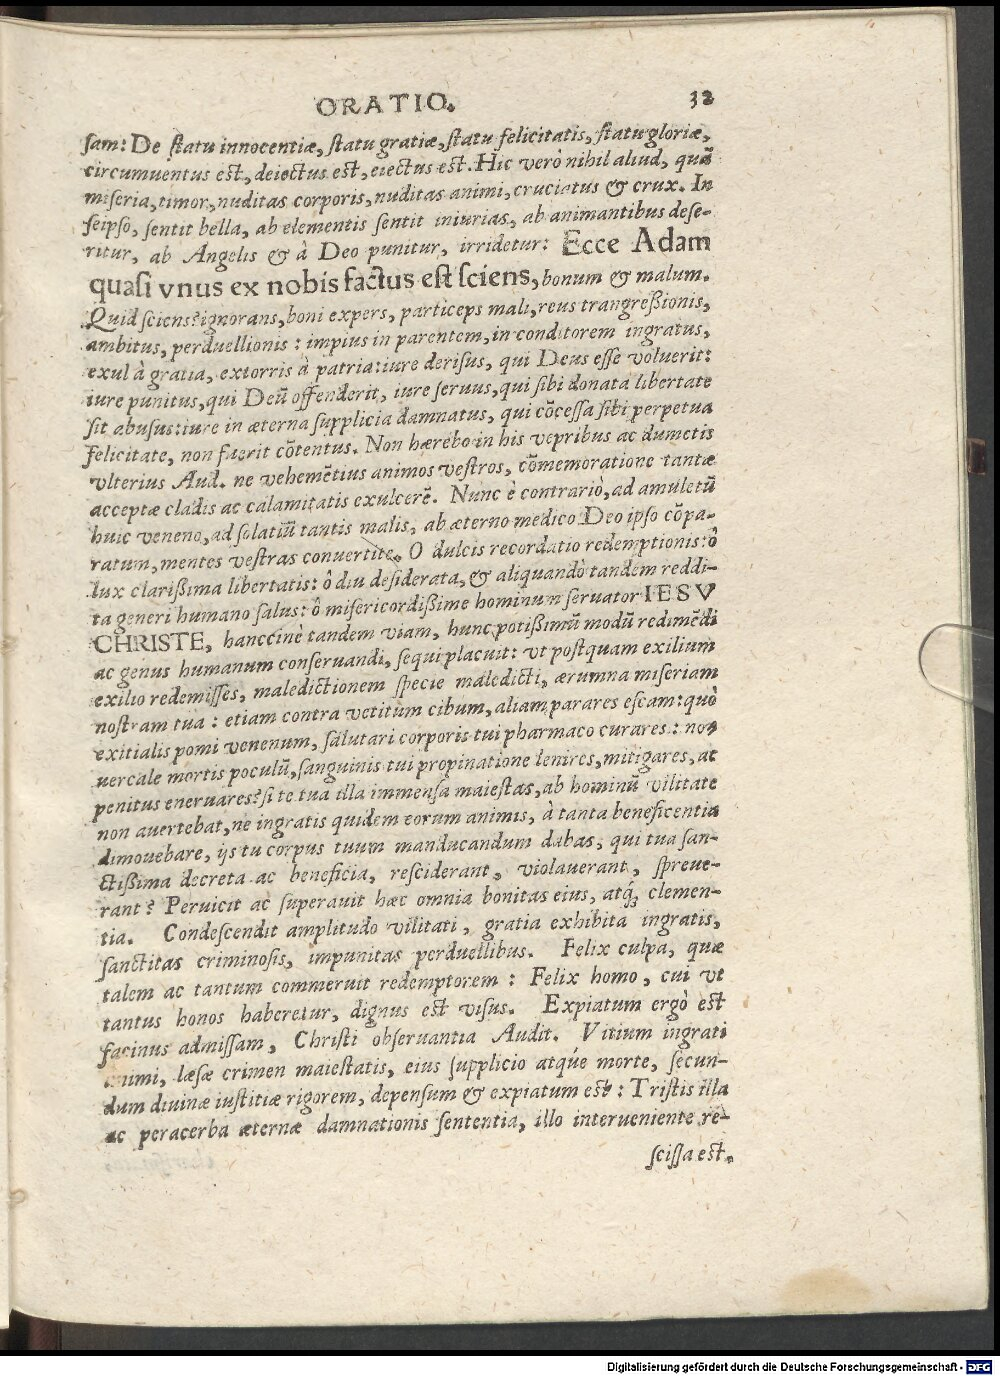 ORATIO. 32
ſam: De ſtatu innocentiæ, ſtatu gratiæ, ſtatu felicitatis, ſtatu gloriæ,
circumuentus eſt, deiectus eſt, eiectus eſt. Hic verò nihil aliud, quā
miſeria, timor, nuditas corporis, nuditas animi, cruciatus & crux. In
ſeipſo, ſentit bella, ab elementis ſentit iniurias, ab animantibus deſe-
ritur, ab Angelis & à Deo punitur, irridetur: Ecce Adam
quaſi vnus ex nobis factus eſt ſciens, bonum & malum.
Quid ſciens? ignorans, boni expers, particeps mali, reus trangreßionis,
ambitus, perduellionis: impius in parentem, in conditorem ingratus,
exul à gratia, extorris à patria: iure deriſus, qui Deus eſſe voluerit:
iure punitus, qui Deū offenderit, iure ſeruus, qui ſibi donata libertate
ſit abuſus: iure in æterna ſupplicia damnatus, qui cōceſſa ſibi perpetua
felicitate, non fuerit cōtentus. Non hærebo in his vepribus ac dumetis
vlterius Aud. ne vehemētius animos veſtros, cōmemoratione tantæ
acceptæ cladis ac calamitatis exulcerē. Nunc è contrariò, ad amuletū
huic veneno, ad ſolatiū tantis malis, ab æterno medico Deo ipſo cōpa-
ratum, mentes veſtras conuertite. O dulcis recordatio redemptionis: ô
lux clarißima libertatis: ô diu deſiderata, & aliquandò tandem reddi-
ta generi humano ſalus: ô miſericordißime hominum ſeruator IESV
CHRISTE, hanccinè tandem viam, hunc potißimū modū redimēdi
ac genus humanum conſeruandi, ſequi placuit: vt poſtquam exilium
exilio redemiſſes, maledictionem ſpecie maledicti, ærumna miſeriam
noſtram tua: etiam contra vetitum cibum, aliam parares eſcam: quò
exitialis pomi venenum, ſalutari corporis tui pharmaco curares: no-
uercale mortis poculū, ſanguinis tui propinatione lenires, mitigares, ac
penitus eneruares? ſi te tua illa immenſa maieſtas, ab hominū vilitate
non auertebat, ne ingratis quidem eorum animis, à tanta beneficentia
dimouebare, ijs tu corpus tuum manducandum dabas, qui tua ſan-
ctißima decreta ac beneficia, reſciderant, violauerant, ſpreue-
rant? Peruicit ac ſuperauit hæc omnia bonitas eius, atq́ꝫ clemen-
tia. Condeſcendit amplitudo vilitati, gratia exhibita ingratis,
ſanctitas criminoſis, impunitas perduellibus. Felix culpa, quæ
talem ac tantum commeruit redemptorem: Felix homo, cui vt
tantus honos haberetur, dignus eſt viſus. Expiatum ergò eſt
facinus admiſſam, Chriſti obſeruantia Audit. Vitium ingrati
animi, læſæ crimen maieſtatis, eius ſupplicio atqúe morte, ſecun-
dum diuinæ iuſtitiæ rigorem, depenſum & expiatum eſt: Triſtis illa
ac peracerba æternæ damnationis ſententia, illo interueniente re-
ſciſſa eſt.
Digitalisierung gefördert durch die Deutsche Forschungsgemeinschaft - DFG